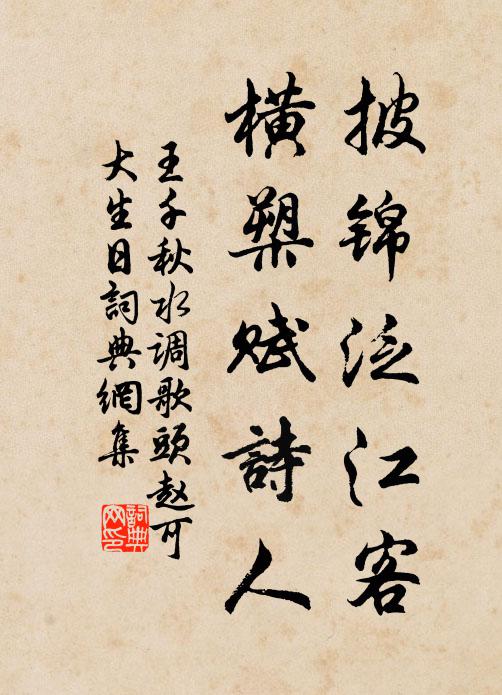 披锦泛江客
横槊赋詩人
王千秋水调歌頭赵可
大生日詞典網集
詞典
网印